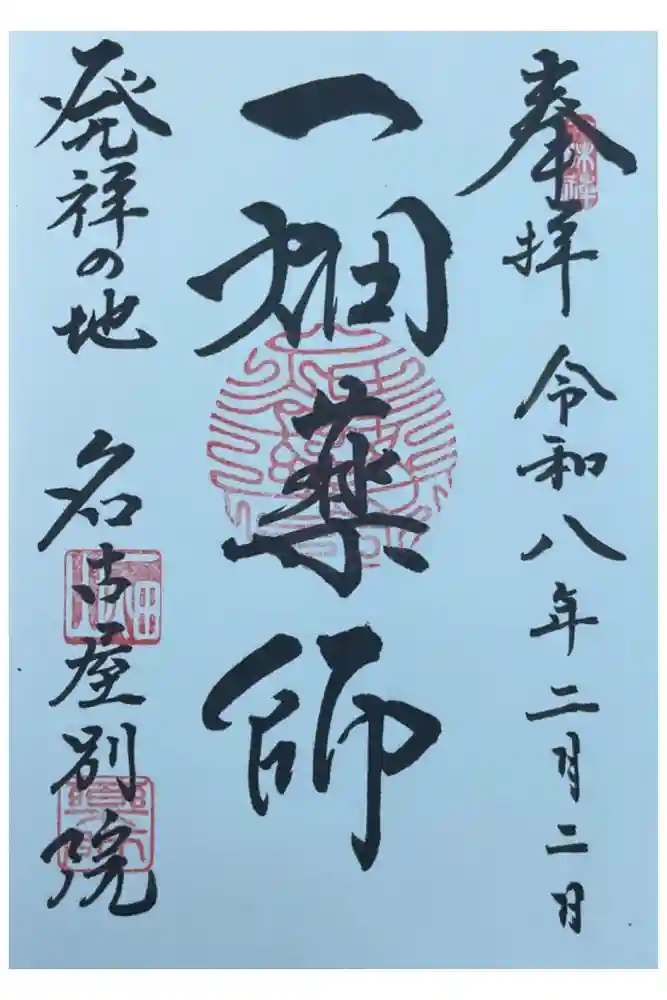 奉拝 令和八年二月二日
一畑薬師
発祥の地 名古屋別院